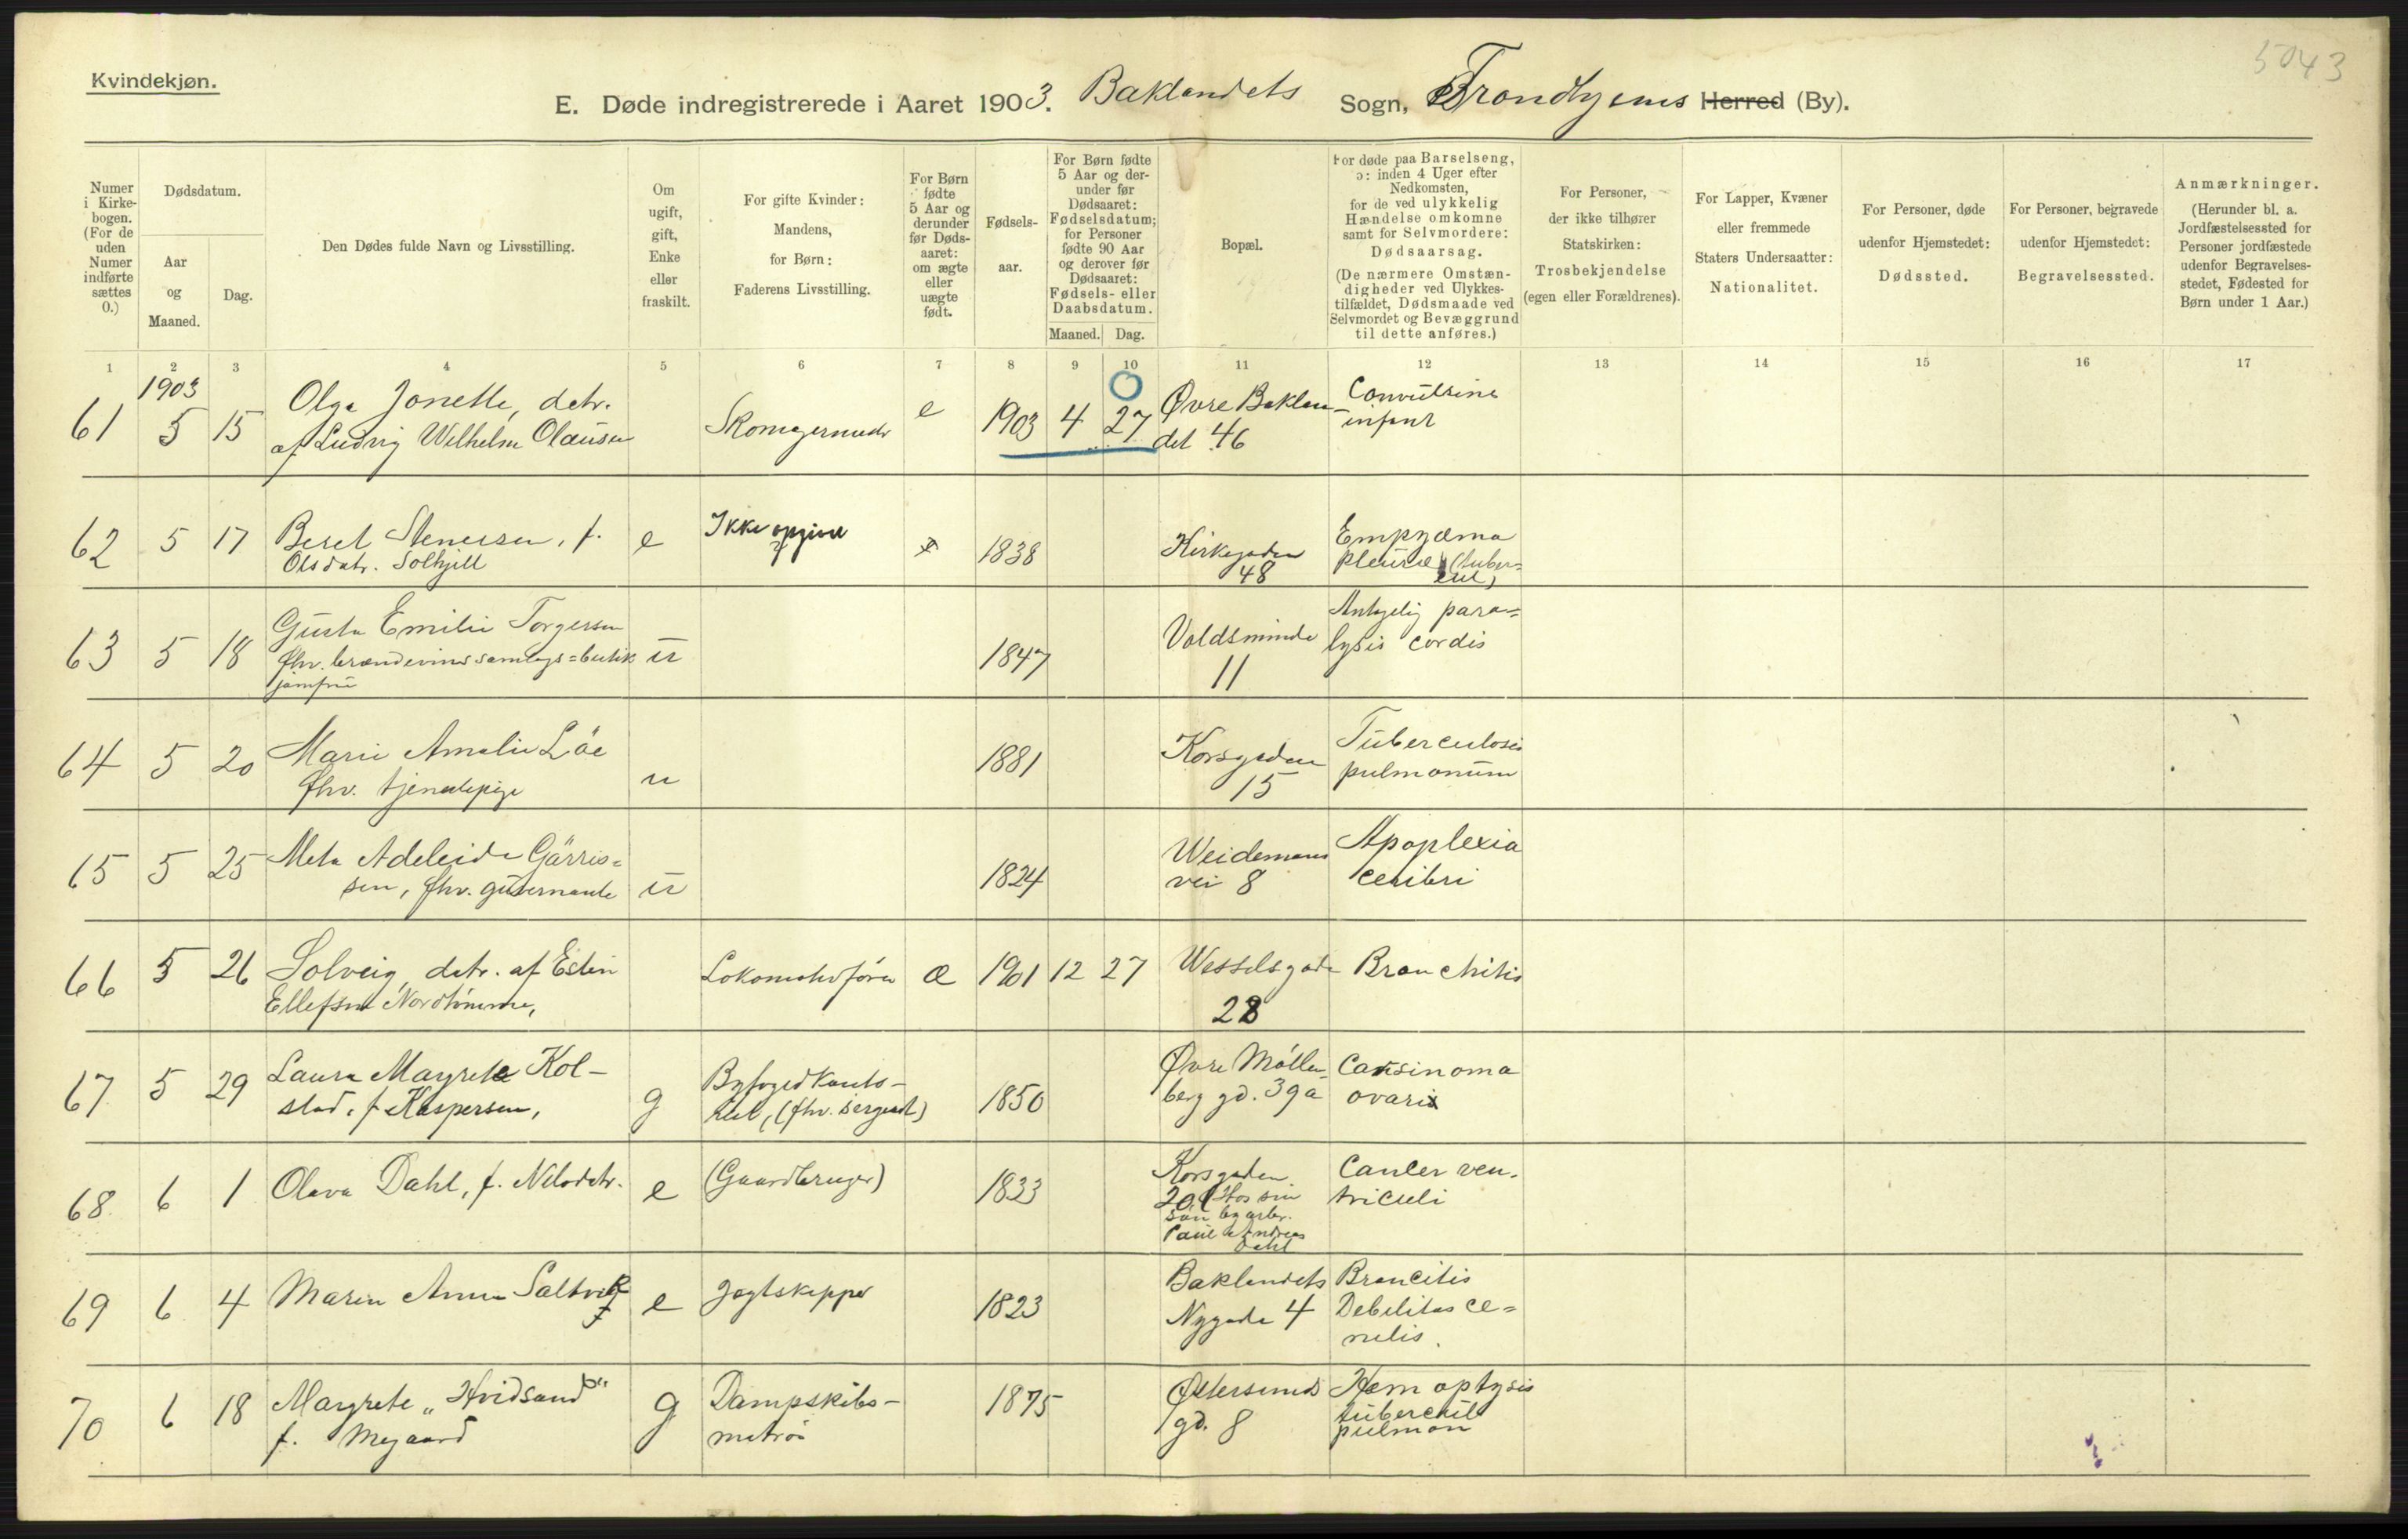 5043
Kvindekjøn.
E. Døde indregistrerede i Aaret 1903. Baklandets Sogn, Trondhjems Herred (By).
Numer i Kirkebogen. (For de uden Numer indførte sættes 0.)
Dødsdatum.
Aar og Maaned.
Dag.
Den Dødes fulde Navn og Livsstilling.
Om ugift, gift, Enke eller fraskilt.
For gifte Kvinder: Mandens, for Børn: Faderens Livsstilling.
For Børn fødte 5 Aar og derunder før Dødsaaret: om ægte eller uægte født.
Fødselsaar.
For Børn fødte 5 Aar og derunder før Dødsaaret: Fødselsdatum; for Personer fødte 90 Aar og derover før Dødsaaret: Fødsels- eller Daabsdatum.
Maaned. Dag.
Bopæl.
For døde paa Barselseng, ɔ: inden 4 Uger efter Nedkomsten, for de ved ulykkelig Hændelse omkomne samt for Selvmordere: Dødsaarsag. (De nærmere Omstændigheder ved Ulykkestilfældet, Dødsmaade ved Selvmordet og Bevæggrund til dette anføres.)
For Personer, der ikke tilhører Statskirken: Trosbekjendelse (egen eller Forældrenes).
For Lapper, Kvæner eller fremmede Staters Undersaatter: Nationalitet.
For Personer, døde udenfor Hjemstedet: Dødssted.
For Personer, begravede udenfor Hjemstedet: Begravelsessted.
Anmærkninger. (Herunder bl. a. Jordfæstelsessted for Personer jordfæstede udenfor Begravelsesstedet, Fødested for Børn under 1 Aar.)
1 2 3 4 5 6 7 8 9 10 11 12 13 14 15 16 17
1903
61 5 15 Olga Jonette, datr. e 1903 4 27 Øvre Baklan- Convulsine
af Ludvig Wilhelm Olausen Skomagersvedr det 46 infant
62 5 17 Beret Stenersen, f. e Ikke opgivet 1838 Kirkegaden Empyæma
Olsdatr. Solhjell 48 pleuræ (tuber=
cul)
63 5 18 Gusta Emilie Torgersen Voldsminde Antagelig para=
fhv. brændevinssamlags=butik u 1847 11 lysis cordis
jomfru
64 5 20 Marie Amalie Löe u 1881 Korsgaden Tuberculosis
fhv. tjenestepige 15 pulmonum
65 5 25 Meta Adeleide Gärris= 1824 Weidemans Apoplexia
sen, fhv. guvernante u vei 8 cerebri
66 5 26 Solveig, datr. af Esten Lokomotivfører æ 1901 12 27 Wesselsgade Bronchitis
Ellefsen Nordtømme, 28
67 5 29 Laura Magrete Kol- Byfogedkonto- 1850 Øvre Møllen- Carsinoma
stad, f. Kaspersen, g rist, (fhv. sergeat) berg gd. 39a ovarii
68 6 1 Olava Dahl, f. Nilsdatr. e (Gaardbruger) 1833 Korsgaden Cancer ven-
20 (Hos sin triculi
søn byarbr.
Paul Andreas
Dahl
69 6 4 Maren Anna Saltvik e Jagtskipper 1823 Baklandets Broncitis
Nygade 4 Debilitas ce=
nilis.
70 6 18 Magrete „Hvidsand" g Dampskibs- 1875 Østersunds Hæmoptysis
f. Mogaard matros gd. 8 tubercul
pulmon